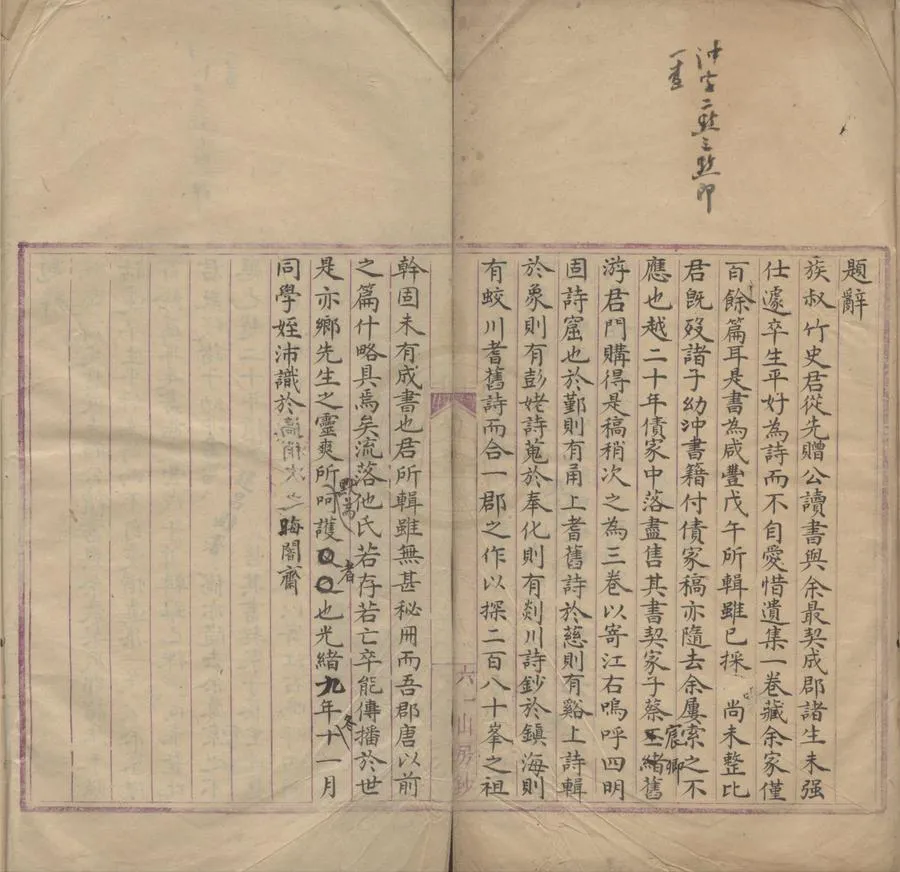 沖字二點三點即
一查
題辭
族叔 竹史君從先贈公讀書與余最契成郡諸生未强
仕遽卒生平好為詩而不自愛惜遺集一卷藏余家僅
百餘篇耳是書為咸豐戊午所輯雖已採 尚未整比
君既歿諸子幼沖書籍付債家稿亦隨去余屢索之不
應也越二十年債家中落盡售其書契家子蔡宸卿緒舊
游君門購得是稿稍次之為三卷以寄江右嗚呼四明
固詩窟也於鄞則有甬上耆舊詩於慈則有谿上詩輯
於象則有彭姥詩蒐於奉化則有剡川詩鈔於鎮海則
有蛟川耆舊詩而合一郡之作以探二百八十峯之祖
六一山房鈔
幹固未有成書也君所輯雖無甚秘冊而吾郡唐以前
之篇什略具焉矣流落他氏若存若亡卒能傳播於世
是亦鄉先生之靈爽所呵護者也光緒九年冬十一月
同學姪沛識於之晦闇齋